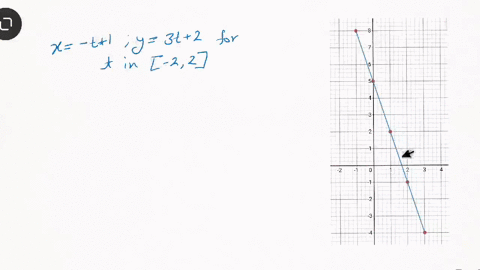 x = -t+1 ; y = 3t+2 for
t in [-2,2]
8
5
2
1
-2 -1 0 1 2 3 4
-1
-2
-3
-4